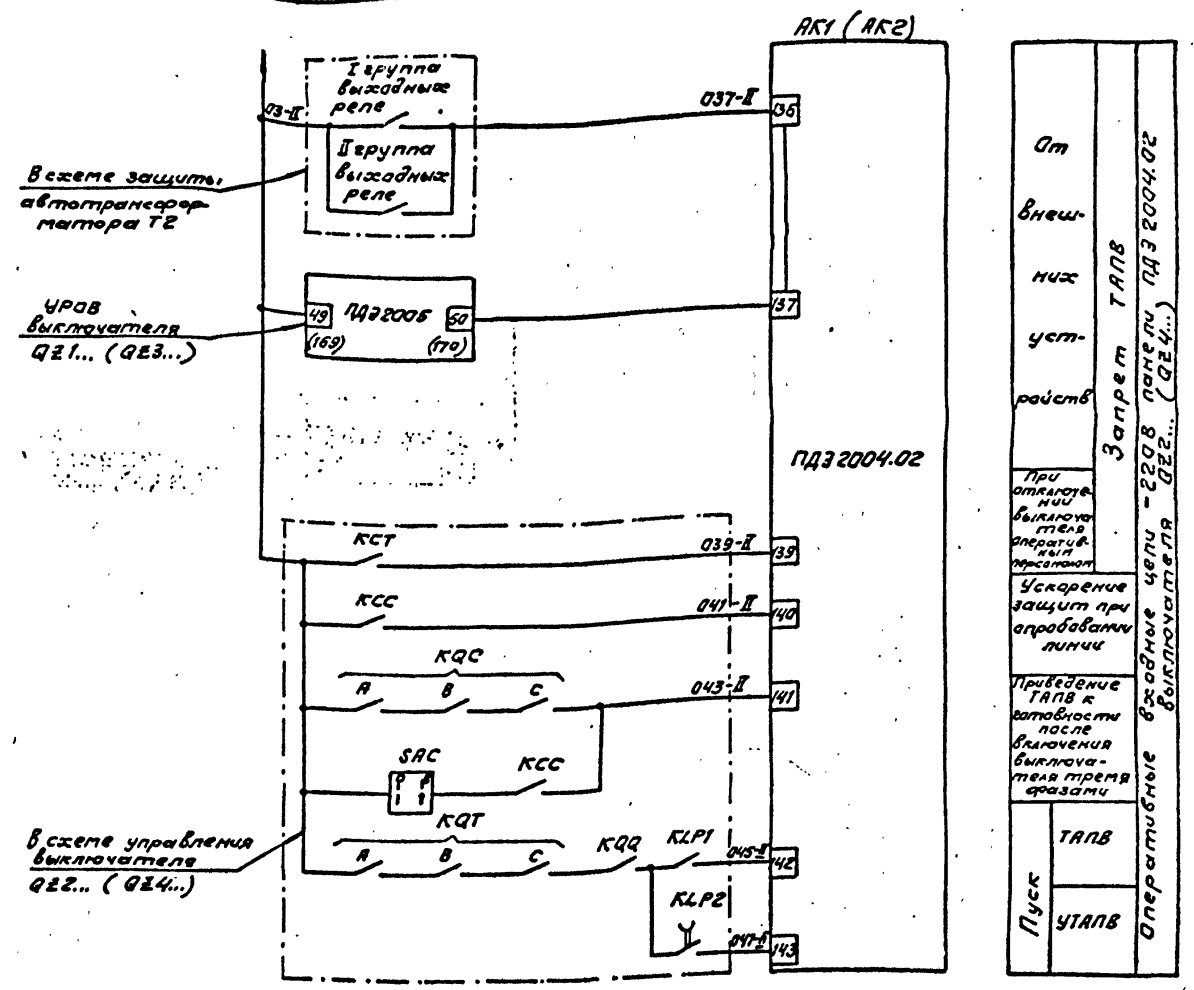 АК1 (АК2)
I группа
выходных
реле
03-II
037-II
136
II группа
выходных
реле
В схеме защиты
автотрансфор-
матора Т2
УРОВ
выключателя
QZ1... (QZ3...)
49
ПДЭ2005
50
(169)
(170)
137
ПДЭ2004.02
КСТ
039-II
139
КСС
041-II
140
KQC
А
В
С
043-II
141
SAC
КСС
KQT
А
В
С
KQQ
KLP1
045-II
142
KLP2
047-II
143
В схеме управления
выключателя
QZ2... (QZ4...)
От
внеш-
них
уст-
ройств
Запрет ТАПВ
При
отключе-
нии
выключа
теля
оператив-
ным
персоналом
Ускорение
защит при
опробовании
линии
Приведение
ТАПВ к
готовности
после
включения
выключа-
теля тремя
фазами
Пуск
ТАПВ
УТАПВ
Оперативные входные цепи -220В панели ПДЭ2004.02
выключателя QZ2... (QZ4...)